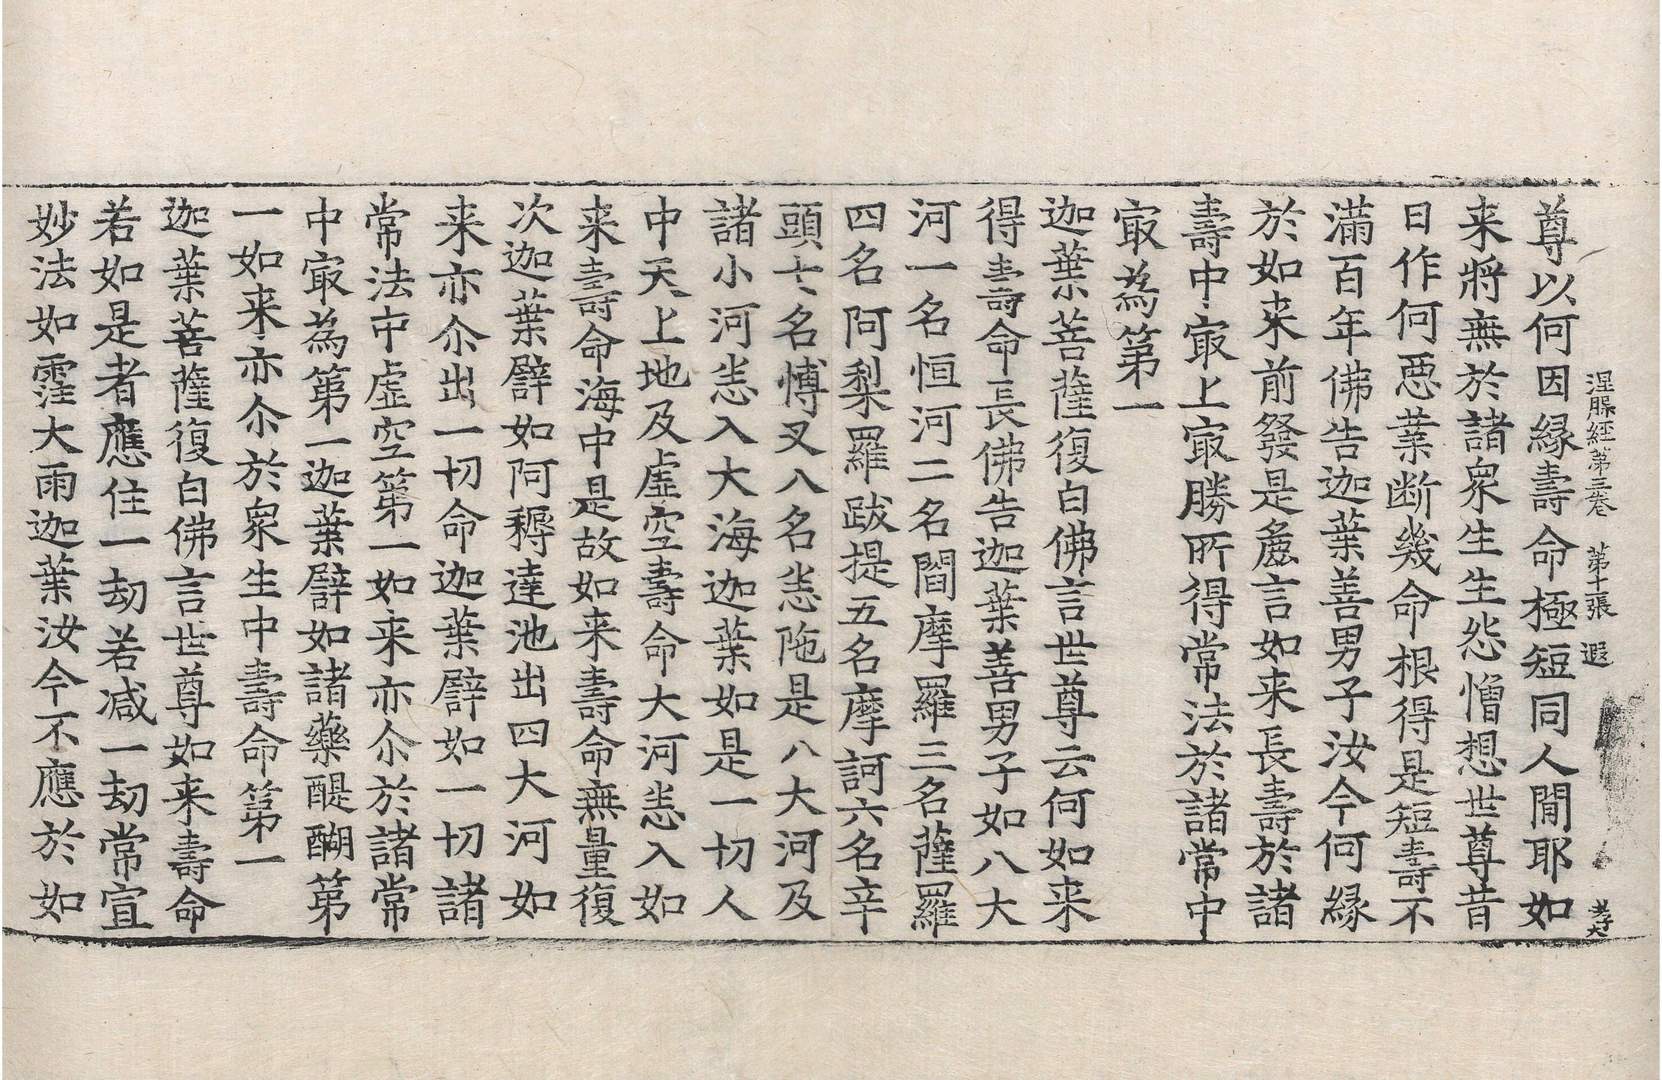 涅槃經第三卷 第十一張 遐 孝大
尊以何因縁壽命極短同人間耶如
来將無於諸衆生生怨憎想世尊昔
日作何惡業断幾命根得是短壽不
滿百年佛告迦葉善男子汝今何縁
於如来前發是麁言如来長壽於諸
壽中冣上冣勝所得常法於諸常中
冣為第一
迦葉菩薩復白佛言世尊云何如来
得壽命長佛告迦葉善男子如八大
河一名恒河二名閻摩羅三名薩羅
四名阿梨羅跋提五名摩訶六名辛
頭七名博叉八名恙陁是八大河及
諸小河恙入大海迦葉如是一切人
中天上地及虛空壽命大河恙入如
来壽命海中是故如来壽命無量復
次迦葉譬如阿耨達池出四大河如
来亦尒出一切命迦葉譬如一切諸
常法中虛空第一如来亦尒於諸常
中冣為第一迦葉譬如諸藥醍醐第
一如来亦尒於衆生中壽命第一
迦葉菩薩復白佛言世尊如来壽命
若如是者應住一劫若减一劫常宣
妙法如霔大雨迦葉汝今不應於如